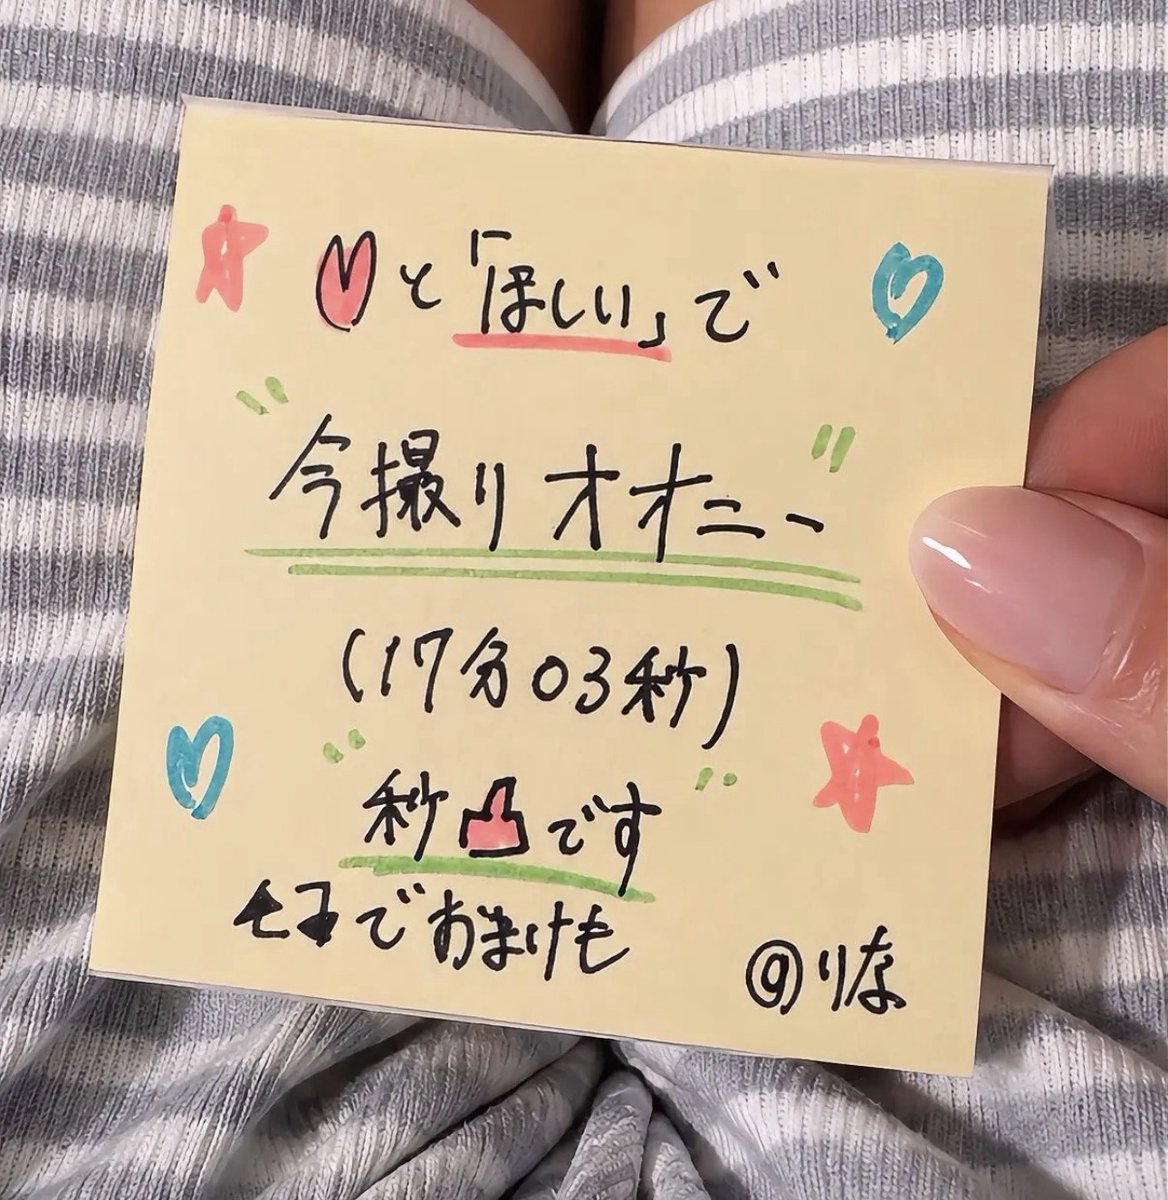 と「ほしい」で
今撮りオオニー
(17分03秒)
秒です
でおまけも
@りな